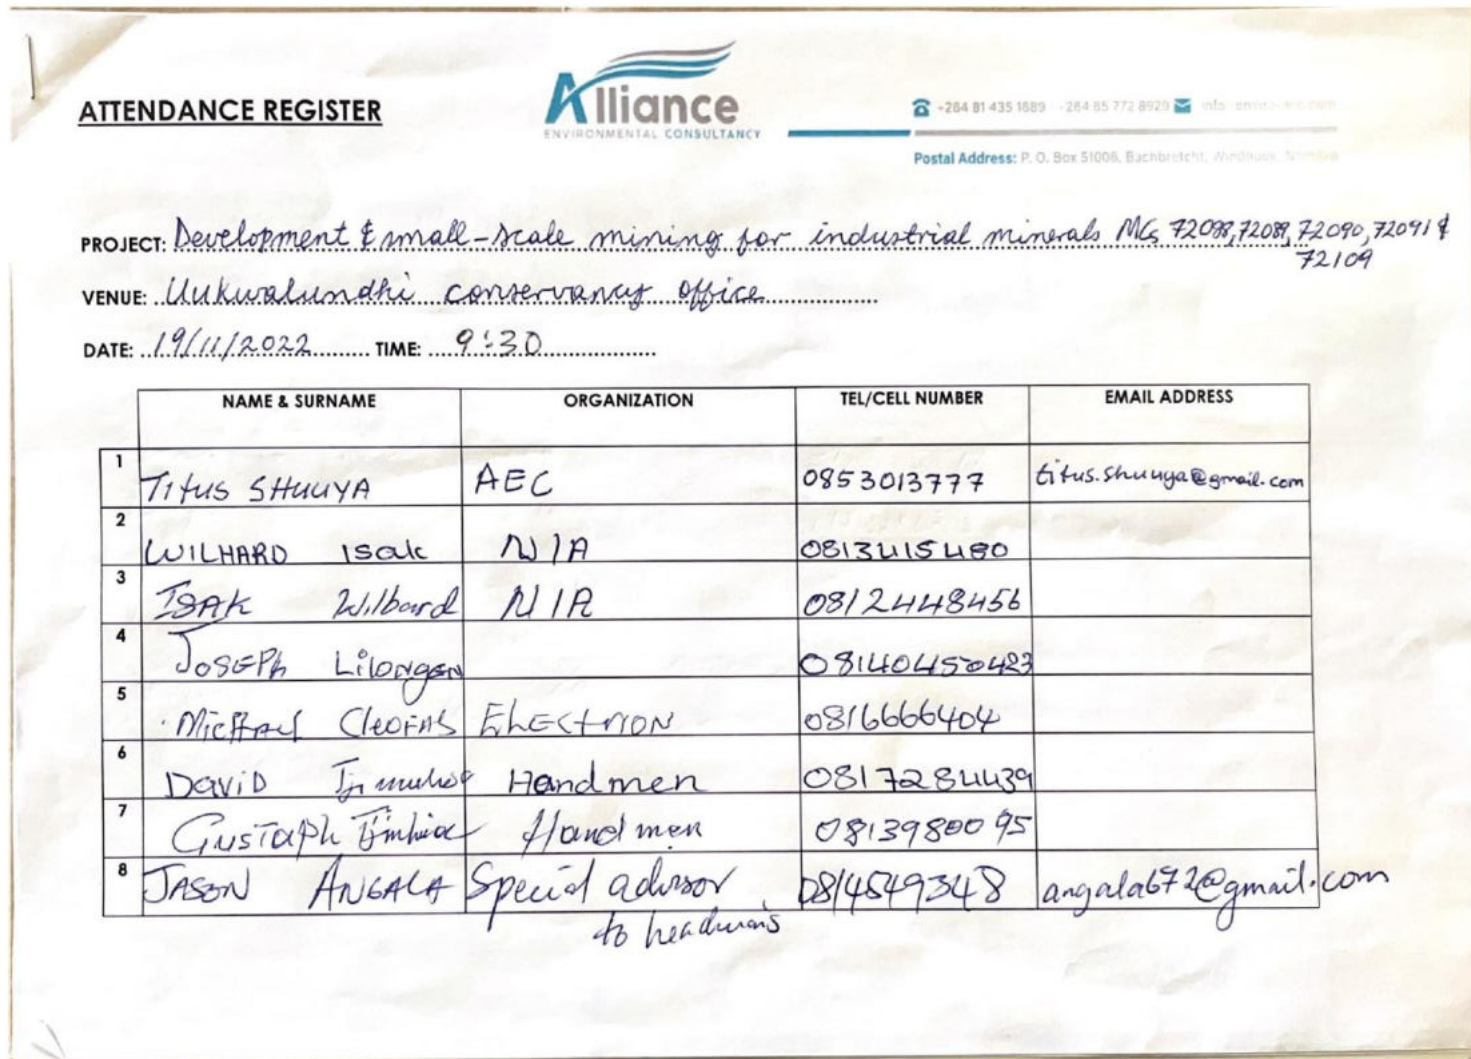 ATTENDANCE REGISTER
Alliance
ENVIRONMENTAL CONSULTANCY
+264 81 435 1689 +264 85 772 8929
Postal Address: P. O. Box 51008, Bachbretcht, Windhoek, Namibia
PROJECT: Development & small-scale mining for industrial minerals MCs 72088, 72089, 72090, 72091 &
72109
VENUE: Uukwalundhi conservancy office
DATE: 19/11/2022 TIME: 9:30
NAME & SURNAME ORGANIZATION TEL/CELL NUMBER EMAIL ADDRESS
1 TITUS SHUUYA AEC 0853013777 titus.shuuya@gmail.com
2 WILHARD Isak N/A 0813415480
3 ISAK Wilbard N/A 0812448456
4 JOSEPh Lilongen 08140450423
5 Michael CleoFAS ELECtrION 0816666404
6 DaviD Handmen 0817284439
7 GusTaph Handmen 0813980095
8 JASON ANGALA Special advisor 0814549348 angala672@gmail.com
to headman's